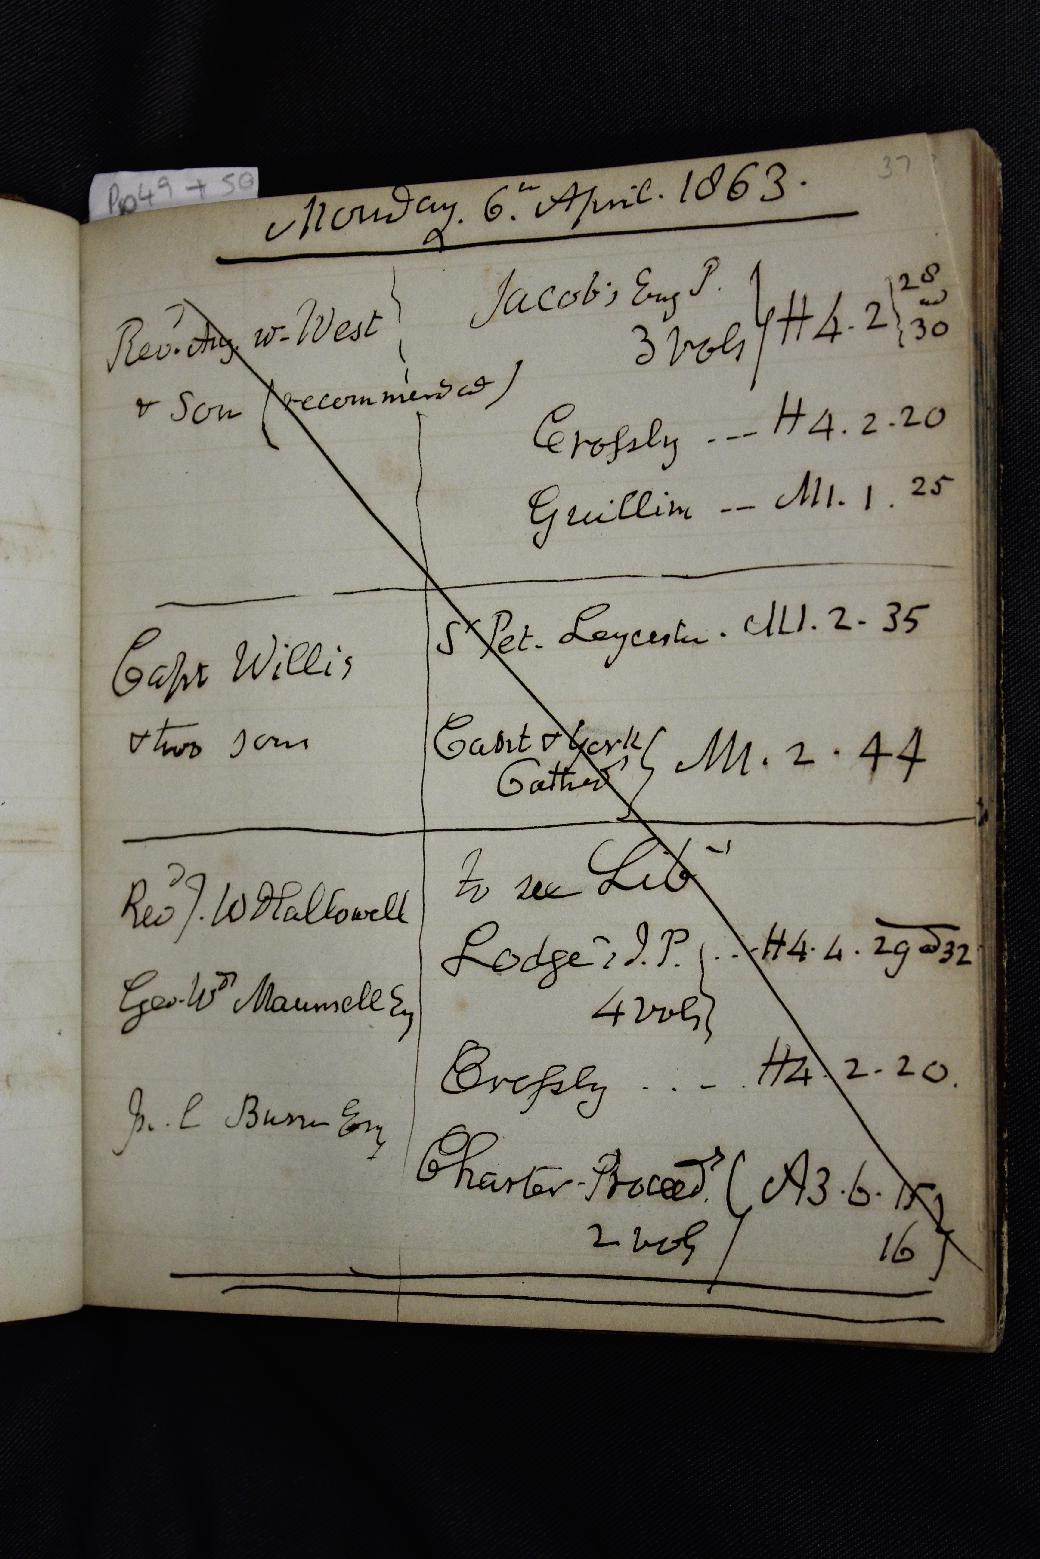 Pp 49 + 50
37
Monday. 6th April. 1863.
Revd Aug. W. West
& Son (recommended)
Jacob's Eng P.
3 vols H4.2 28 and 30
Crossly --- H4.2.20
Guillim -- M1.1.25
Capt Willis
& two sons
Sr Pet. Leycester. M1.2.35
Cant & York
Cathed M1.2.44
Revd J. W Hallowell
to see Liby
Geo. Wm Maunsell Esq
Lodge's I.P. ... H4.4.29 and 32
4 vols
Crossly ... H4.2.20.
Burn Esq
Charter Proceeds A3.6.15
2 vols 16